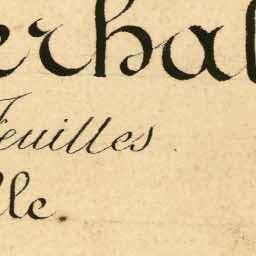 erbal
Feuilles.
lle.